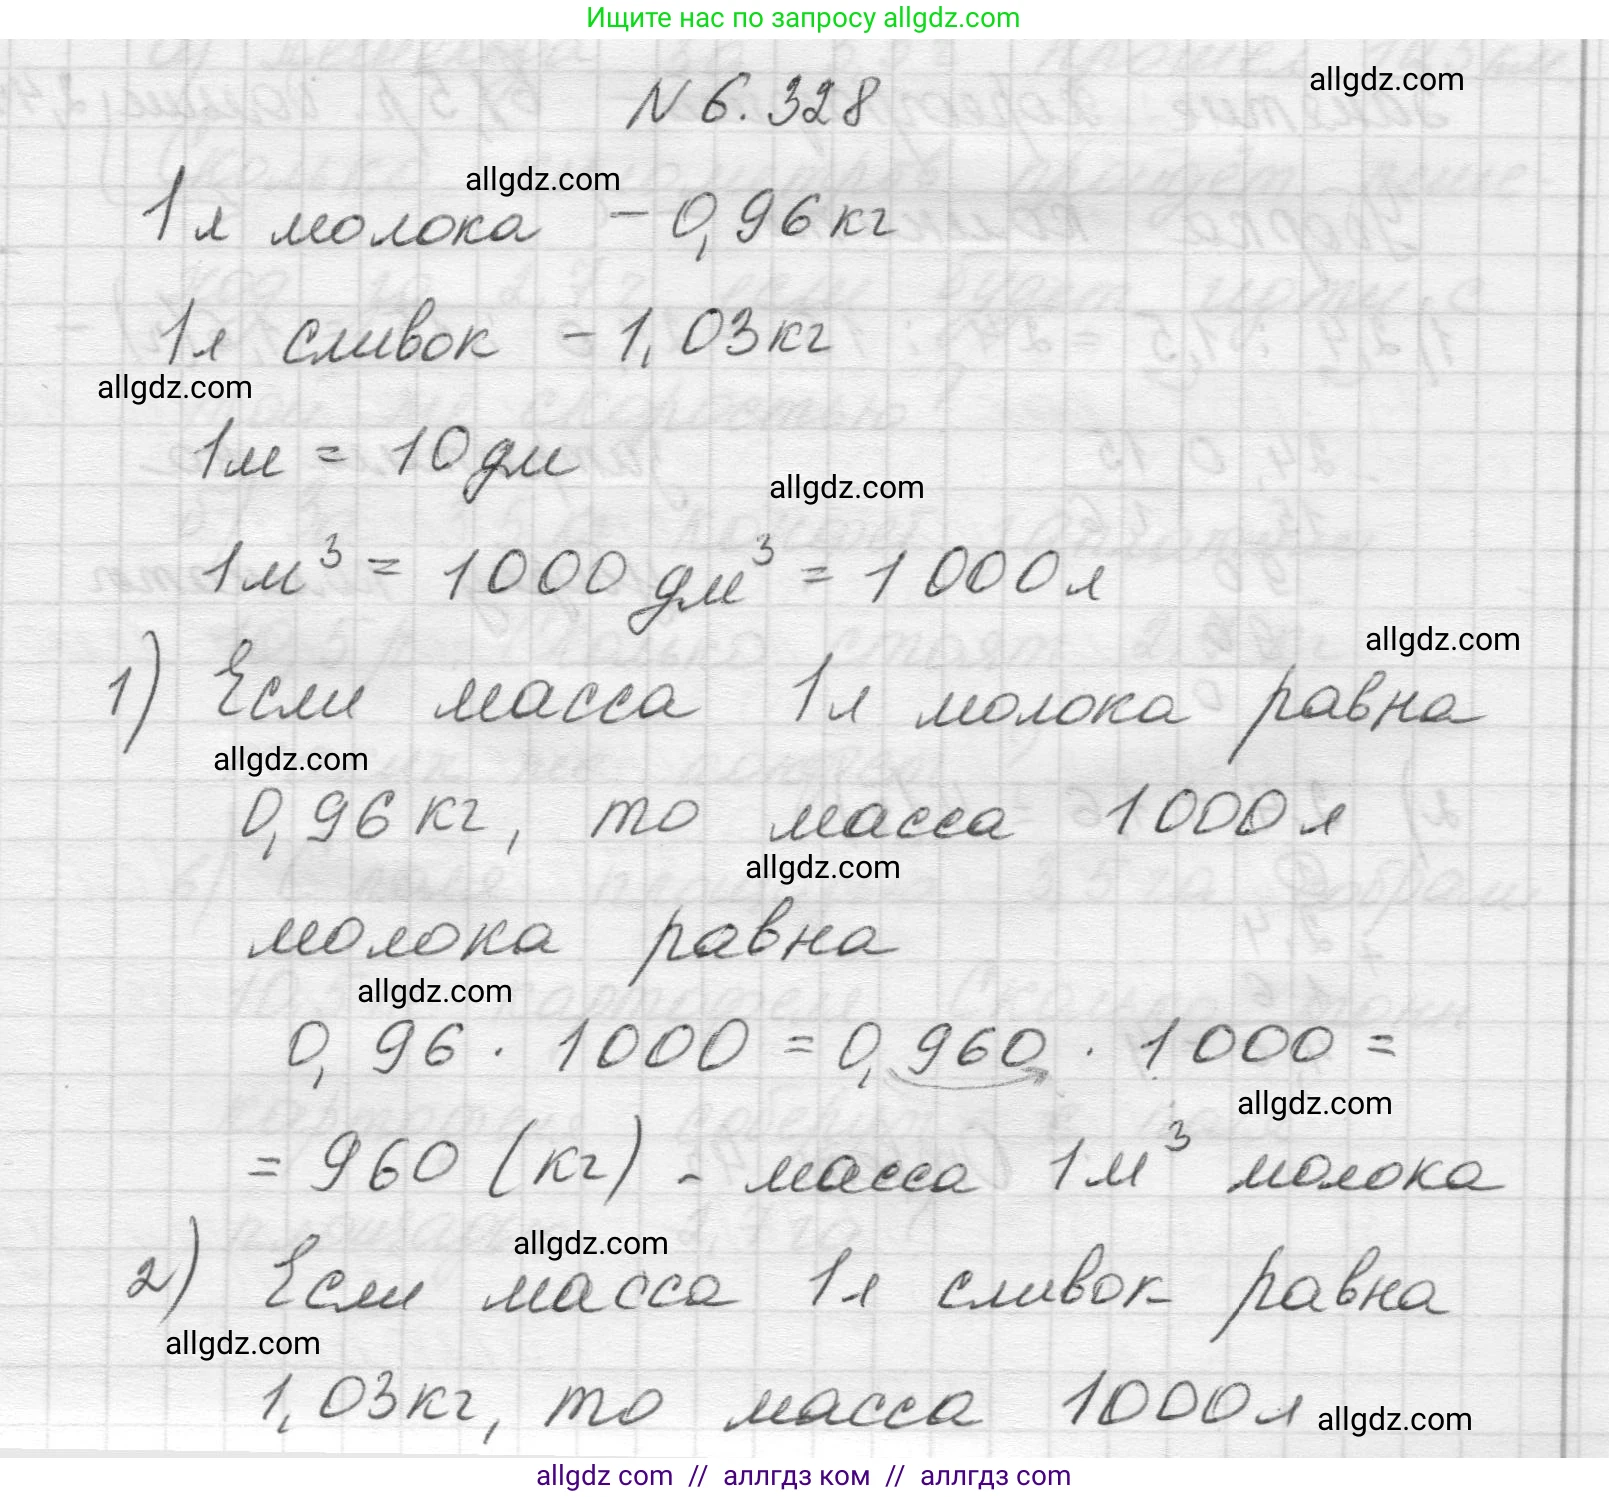 Ищите нас по запросу allgdz.com
allgdz.com
N 6.328
allgdz.com
1л молока - 0,96 кг
1л сливок - 1,03 кг
allgdz.com
1м = 10 дм
allgdz.com
1м³ = 1000 дм³ = 1000 л
allgdz.com
1) Если масса 1л молока равна
allgdz.com
0,96 кг, то масса 1000 л
allgdz.com
молока равна
allgdz.com
0,96 · 1000 = 0,960 · 1000 =
allgdz.com
= 960 (кг) - масса 1м³ молока
allgdz.com
2) Если масса 1л сливок равна
allgdz.com
1,03 кг, то масса 1000 л
allgdz.com
allgdz com // аллгдз ком // аллгдз com